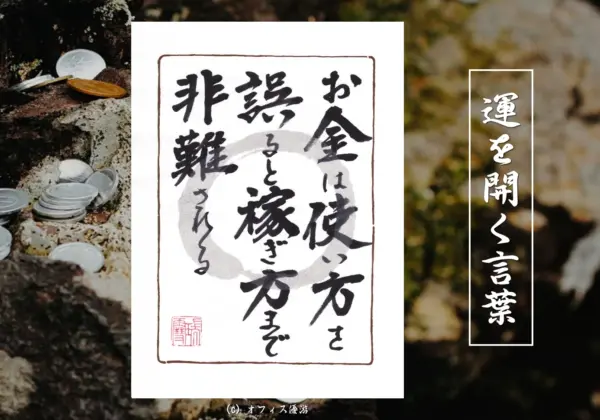 お金は使い方を
誤ると稼ぎ方まで
非難される
運を開く言葉
(C) オフィス優游